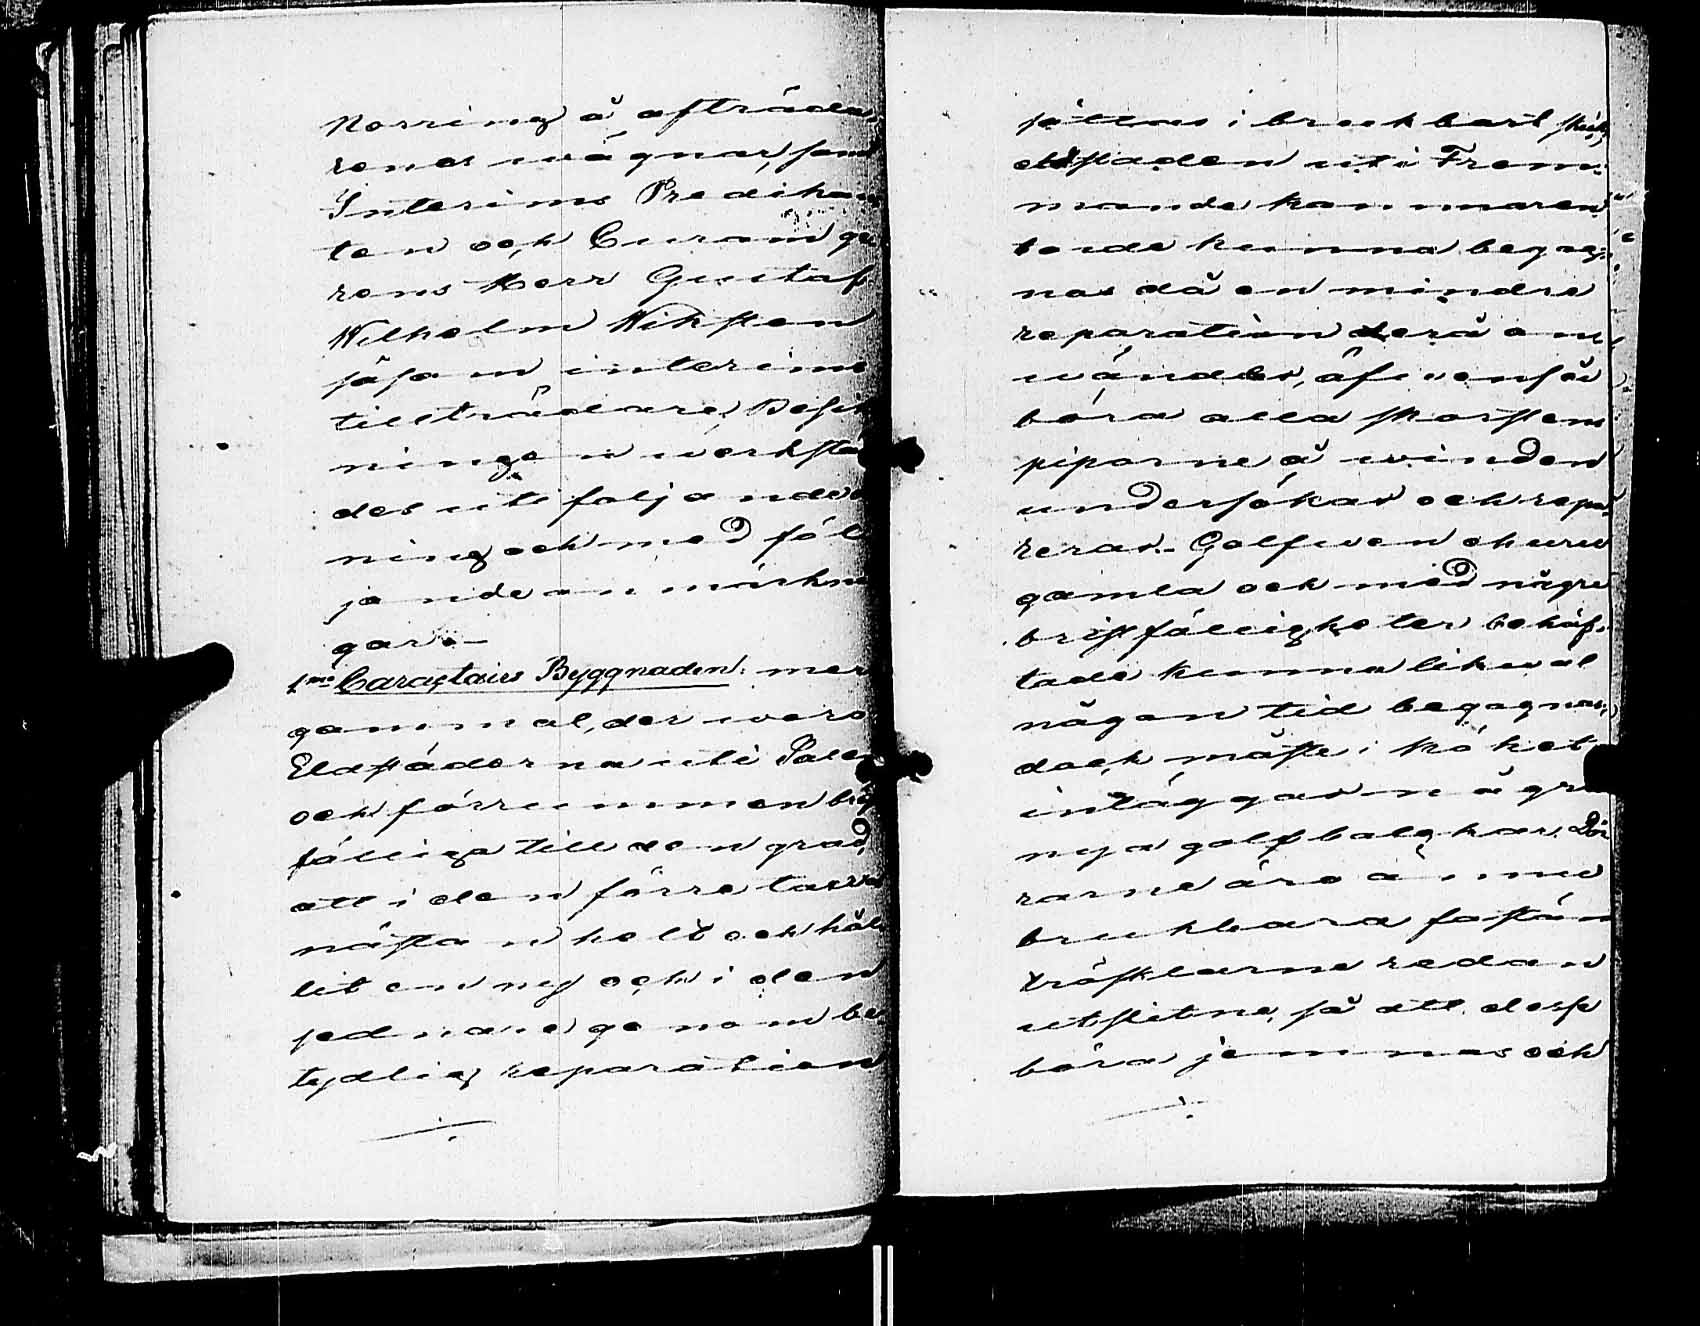 Norring å afträda-
renes wägnar, som
Interims Predikan
ten och Curam ge
rens Herr Gustaf
Wilhelm Wiksten
såsom interims
tillträdare, Besigt
ningen werkstäl
des uti följande ord
ning och med föl
jande anmärknin
gar:—
1mo Caractairs Byggnaden: mer
gammal, der woro
Eldstäderna uti Salen
och förrummen brist
fälliga till den grad,
att i den förre tarfwa
nästan helt och hål
lit en ny och i den
sednare genom be
tydlig reparation
sättas i brukbart skick,
eldstaden uti Frem-
mande kammaren
torde kunna begag-
nas då en mindre
reparation derå an
wändes, äfwenså
böra alla skorstens
piporne å winden
undersökas och repa
reras. Golfwen ehuru
gamla och med några
bristfälligheter behäf-
tade kunna likwäl
någon tid begagnas,
dock måste i köket
inläggas några
nya golfbalgkar. Dör
rarne äro ännu
brukbara fastän
trösklarne redan
utslitne, så att desse
böra jemnas och